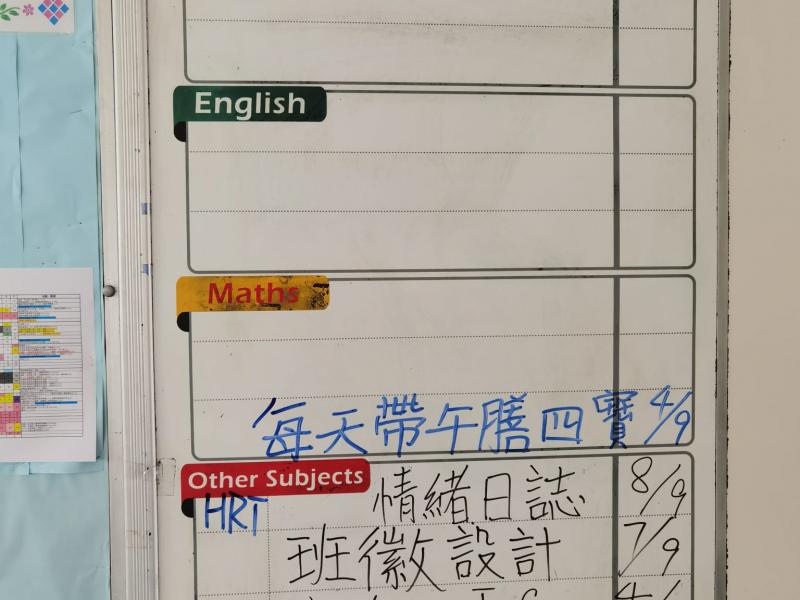 English
Maths
每天帶午膳四寶 4/9
Other Subjects
HRT 情緒日誌 8/9
班徽設計 7/9